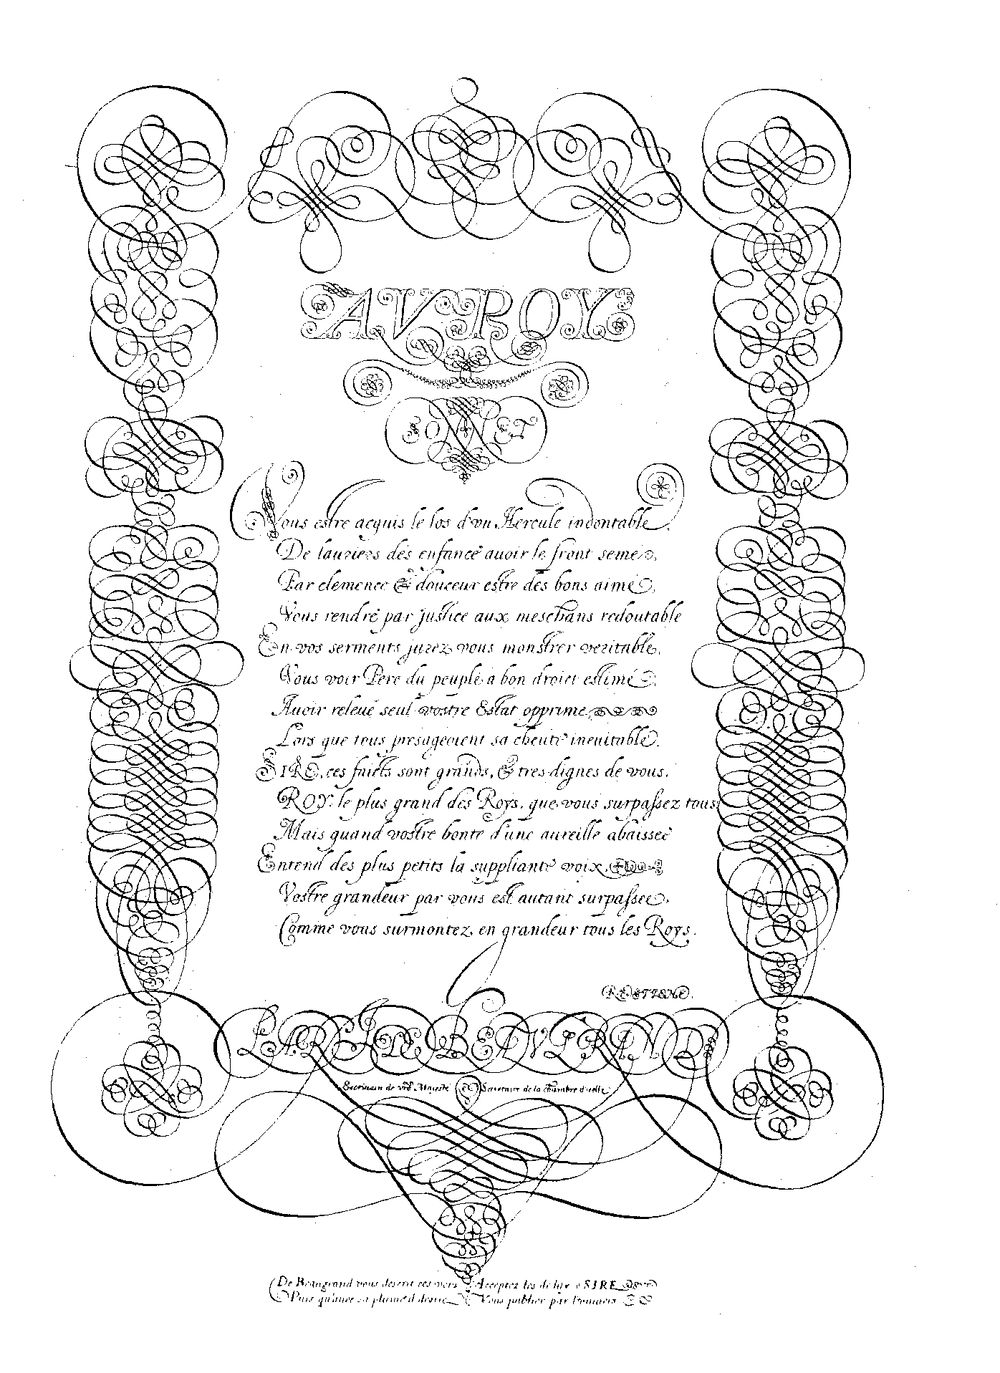 AV ROY
SONET
Vous estre acquis le los d'vn Hercule indontable,
De lauriers dés enfance auoir le front semé,
Par clemence & douceur estre des bons aimé,
Vous rendre par justice aux meschans redoutable
En vos serments jurez vous monstrer veritable,
Vous voir Pere du peuple à bon droict estimé,
Auoir releué seul vostre Estat opprimé
Lors que tous presageoient sa cheute ineuitable.
SIRE, ces faicts sont grands, & tres dignes de vous,
ROY, le plus grand des Roys, que vous surpassez tous
Mais quand vostre bonté d'une aureille abaissee
Entend des plus petits la suppliante voix,
Vostre grandeur par vous est autant surpassee,
Comme vous surmontez, en grandeur tous les Roys.
PAR I DE BEAVGRAND
Escriuain de vrē Majesté & Secretaire de la chambre d'icelle
De Beaugrand vous descrit ces vers Acceptez les de luy ô SIRE
Puis qu'auec sa plume il desire Vous publier par l'vniuers